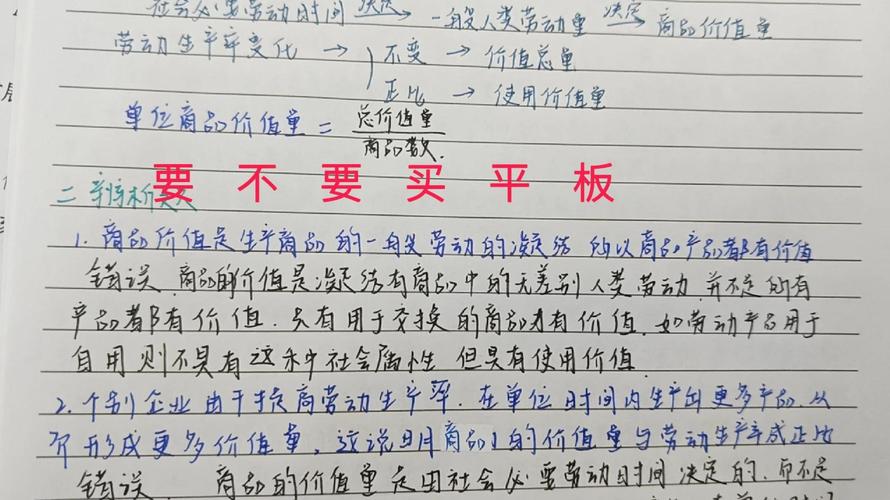 社会必要劳动时间 决定 一般人类劳动量 决定 商品价值量
劳动生产率变化 不变 价值总量
正比 使用价值量
单位商品价值量 = 总价值量
商品数
要不要买平板
二 辨析
1. 商品价值是生产商品的一般劳动的凝结 所以商品产品都有价值
错误 商品的价值是凝结有商品中的无差别人类劳动 并不是所有
产品都有价值. 只有用于交换的商品才有价值. 如劳动产品用于
自用则不具有这种社会属性 但具有使用价值
2. 个别企业由于提高劳动生产率. 在单位时间内生产出更多产品. 从
形成更多价值量, 这说明商品的价值量与劳动生产率成正比
错误 商品的价值量是由社会必要劳动时间决定的. 而不是